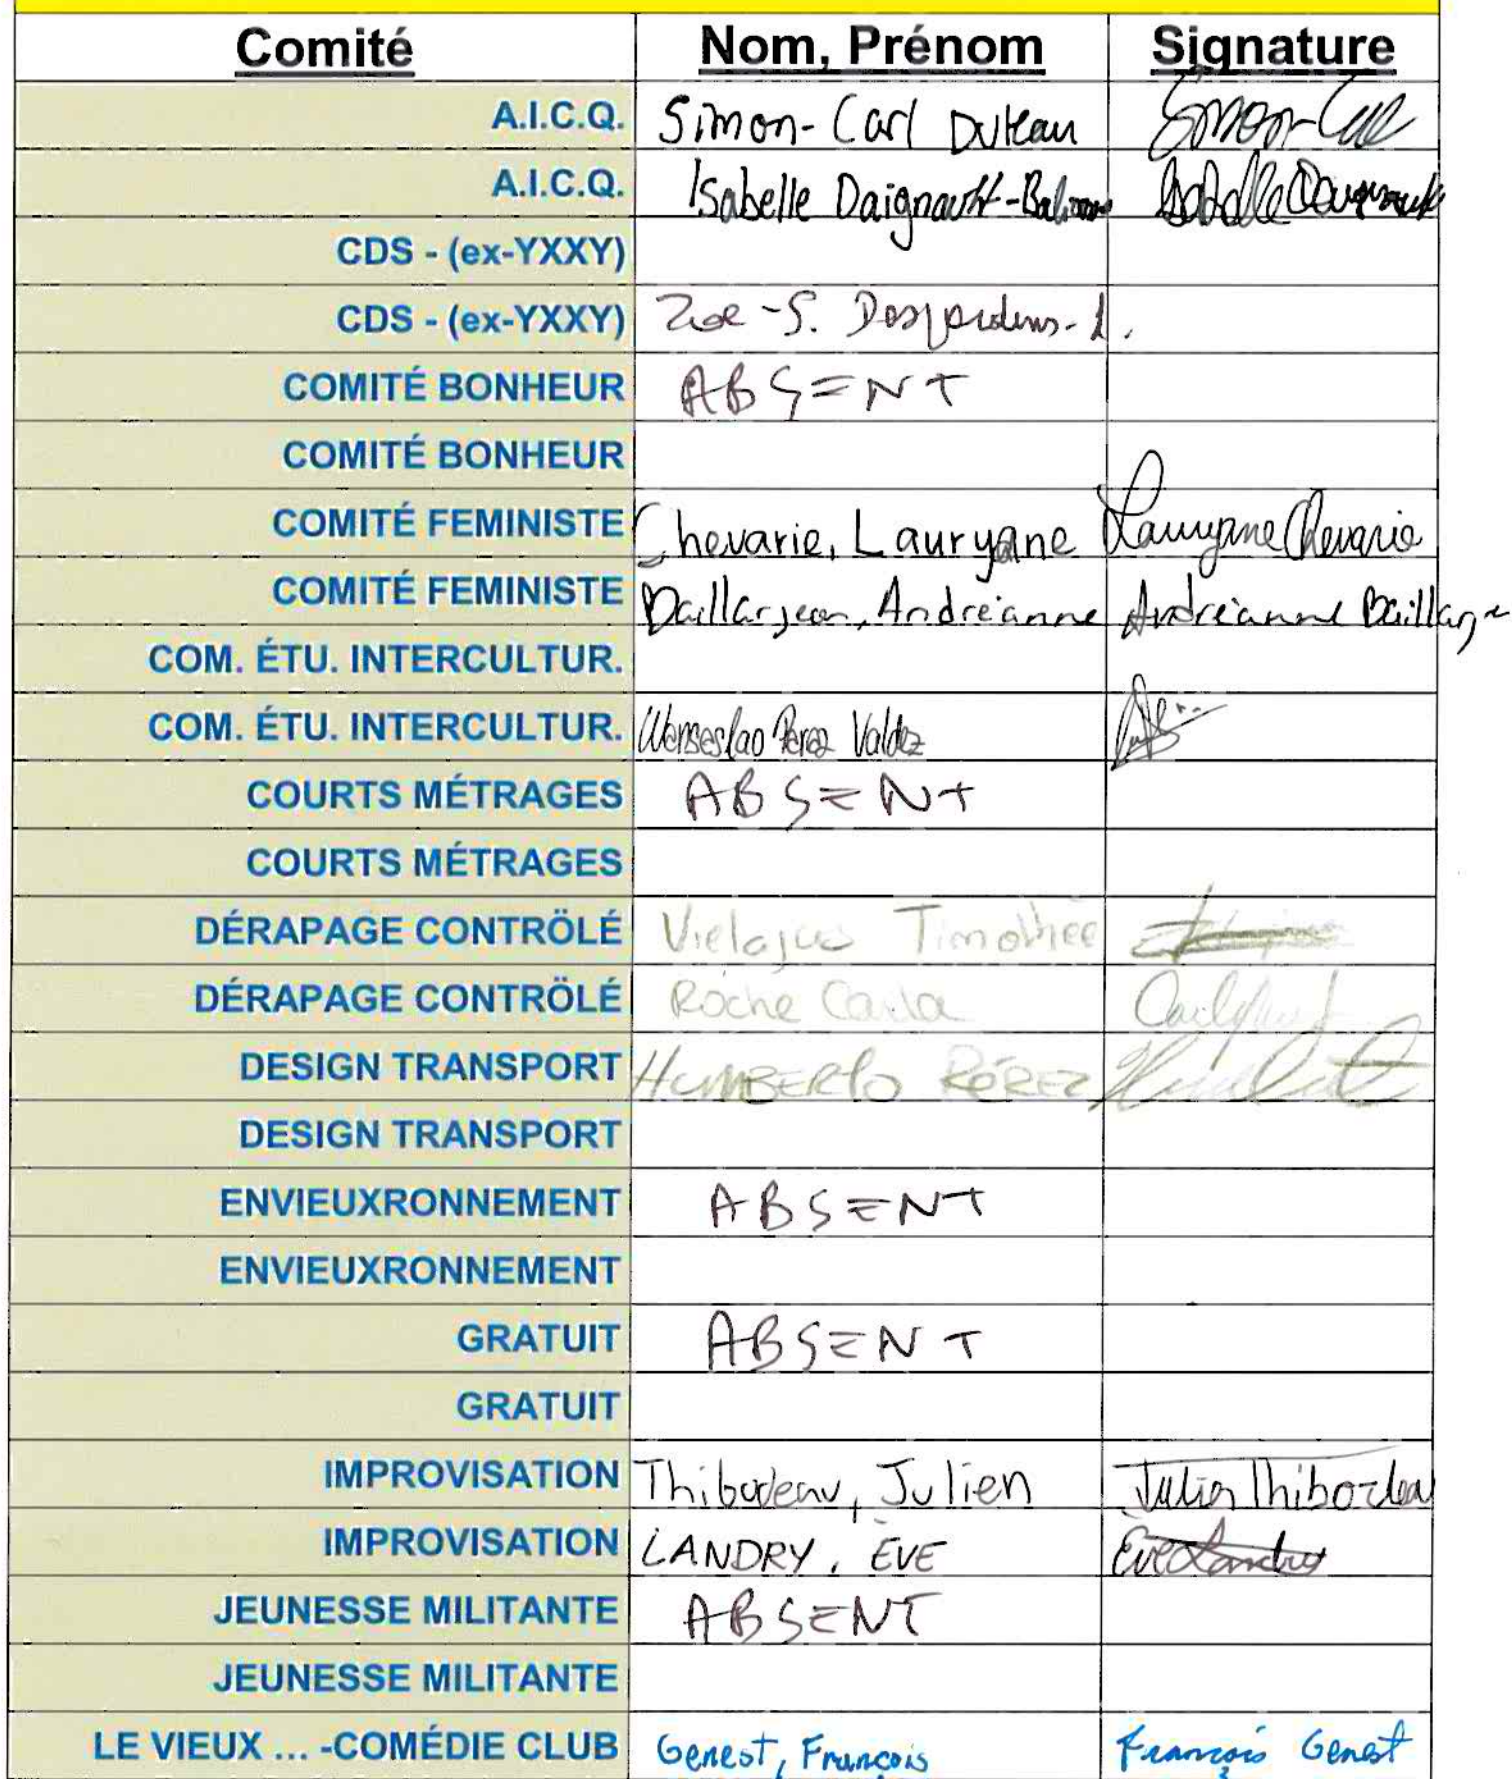 Comité Nom, Prénom Signature
A.I.C.Q. Simon-Carl Duteau Simon-Carl
A.I.C.Q. Isabelle Daignault- Isabelle Daignault
CDS - (ex-YXXY)
CDS - (ex-YXXY) Zoé-S. Desjardins-L.
COMITÉ BONHEUR ABSENT
COMITÉ BONHEUR
COMITÉ FEMINISTE Chevarie, Lauryane Lauryane Chevarie
COMITÉ FEMINISTE Baillargeon, Andréanne Andréanne Baillarge
COM. ÉTU. INTERCULTUR.
COM. ÉTU. INTERCULTUR. Wenseslao Perez Valdez
COURTS MÉTRAGES ABSENT
COURTS MÉTRAGES
DÉRAPAGE CONTRÖLÉ Vielajus Timothée
DÉRAPAGE CONTRÖLÉ Roche Carla
DESIGN TRANSPORT HUMBERTO PÉREZ
DESIGN TRANSPORT
ENVIEUXRONNEMENT ABSENT
ENVIEUXRONNEMENT
GRATUIT ABSENT
GRATUIT
IMPROVISATION Thibodeau, Julien Julien Thibodeau
IMPROVISATION LANDRY, ÈVE Ève Landry
JEUNESSE MILITANTE ABSENT
JEUNESSE MILITANTE
LE VIEUX ... -COMÉDIE CLUB Genest, François François Genest